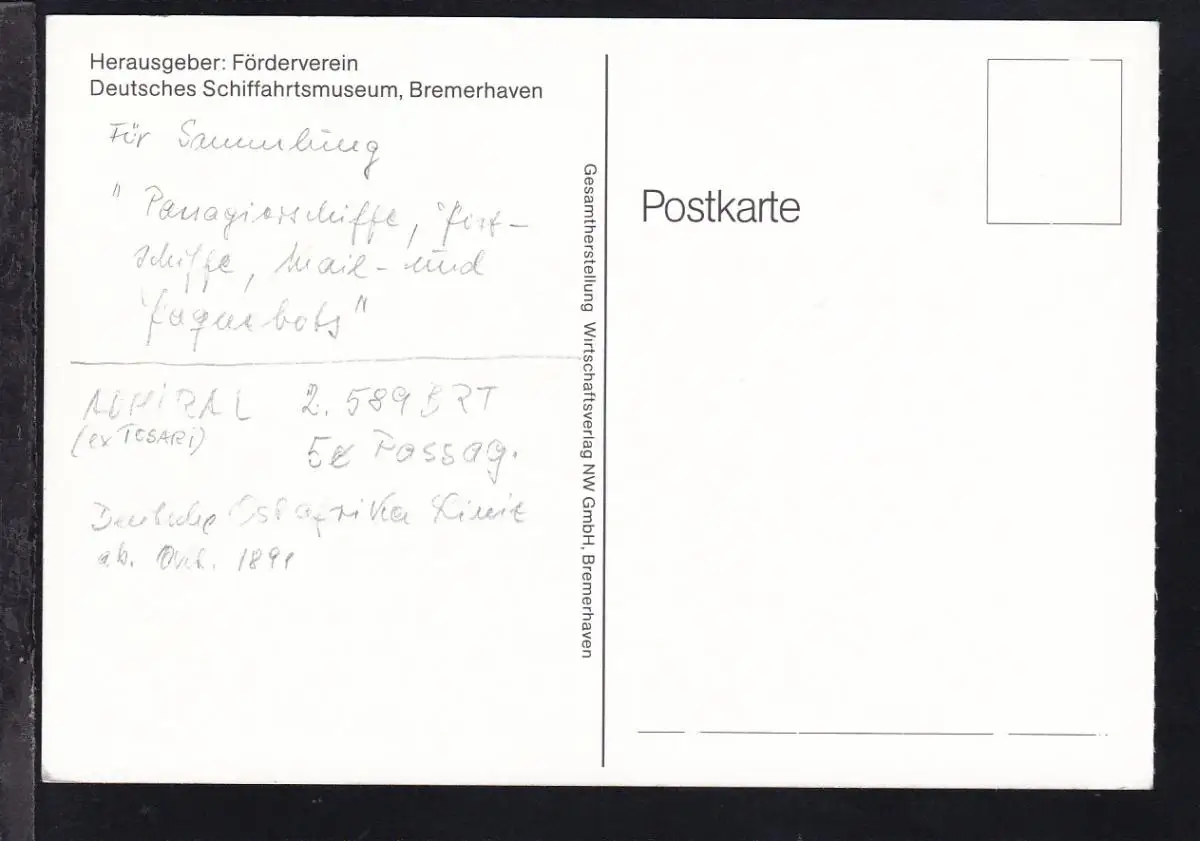 Herausgeber: Förderverein
Deutsches Schiffahrtsmuseum, Bremerhaven
Für Sammlung
"Passagierschiffe, Post-
schiffe, Mail- und
Paquebots"
ADMIRAL 2.589 BRT
(ex TOSARI) Passag.
Deutsche Ostafrika Linie
ab. 1891
Gesamtherstellung Wirtschaftsverlag NW GmbH, Bremerhaven
Postkarte